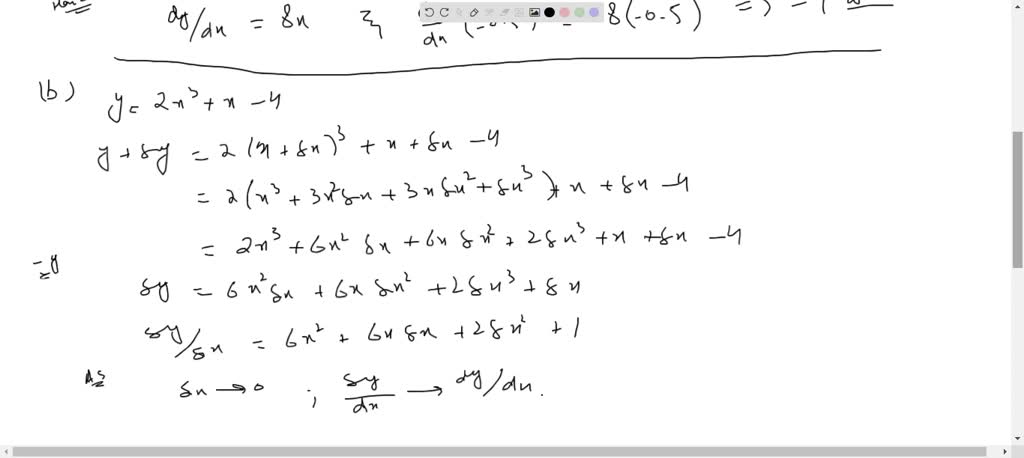 dy/dx = 8x 8(-0.5) =>
(b) y = 2x³ + x - 4
y + δy = 2(x + δx)³ + x + δx - 4
= 2(x³ + 3x²δx + 3xδx² + δx³) + x + δx - 4
= 2x³ + 6x² δx + 6x δx² + 2δx³ + x + δx - 4
-y
δy = 6x²δx + 6x δx² + 2δx³ + δx
δy/δx = 6x² + 6x δx + 2δx² + 1
As δx → 0 ; δy/dx → dy/dx.